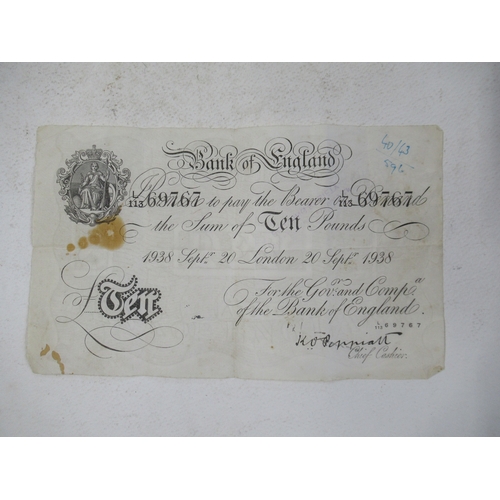 Bank of England
40/43
L/113 69767 to pay the Bearer L/113 69767
the Sum of Ten Pounds
1938 Septr. 20 London 20 Septr. 1938
£Ten
For the Govr. and Compa.
of the Bank of England.
L/113 69767
K O Peppiatt
Chief Cashier.